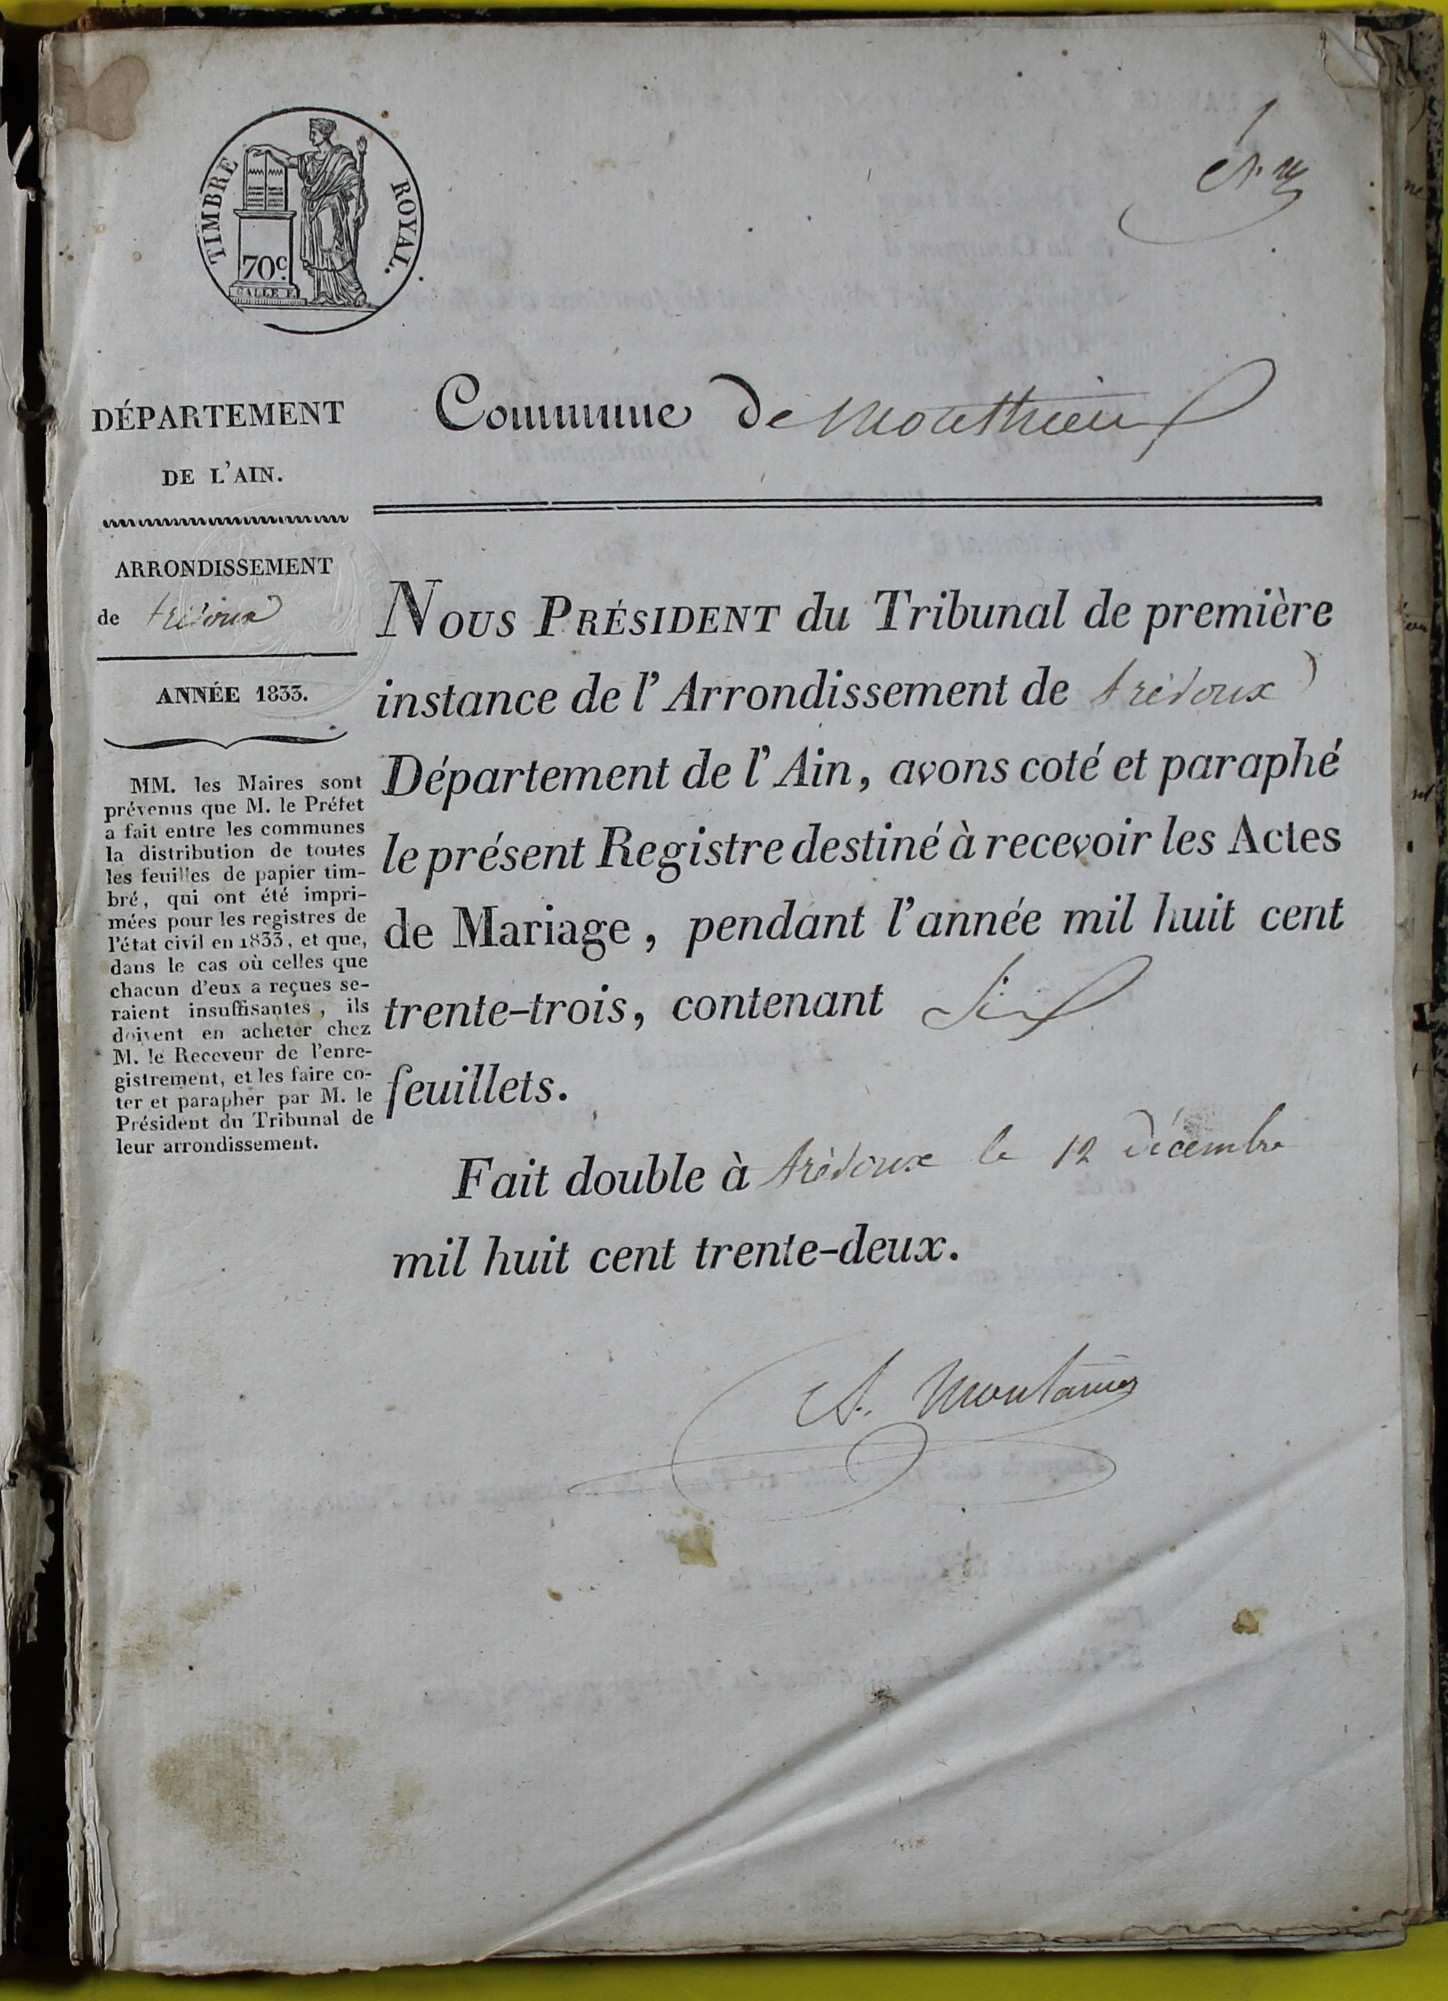 TIMBRE ROYAL.
70c.
1
DÉPARTEMENT
DE L'AIN.
ARRONDISSEMENT
de trévoux
ANNÉE 1833.
MM. les Maires sont
prévenus que M. le Préfet
a fait entre les communes
la distribution de toutes
les feuilles de papier tim-
bré, qui ont été impri-
mées pour les registres de
l'état civil en 1833, et que,
dans le cas où celles que
chacun d'eux a reçues se-
raient insuffisantes, ils
doivent en acheter chez
M. le Receveur de l'enre-
gistrement, et les faire co-
ter et parapher par M. le
Président du Tribunal de
leur arrondissement.
Commune de Monthieux
NOUS PRÉSIDENT du Tribunal de première
instance de l'Arrondissement de trévoux
Département de l'Ain, avons coté et paraphé
le présent Registre destiné à recevoir les Actes
de Mariage, pendant l'année mil huit cent
trente-trois, contenant Six
feuillets.
Fait double à trévoux le 12 décembre
mil huit cent trente-deux.
A. Montanier